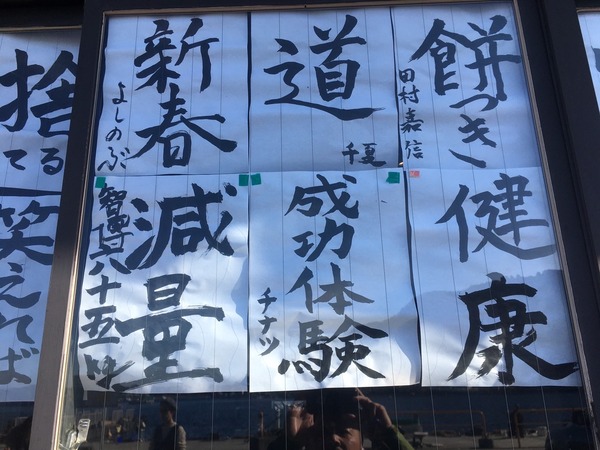 餅つき
田村嘉信
道
千夏
新春
よしのぶ
捨
てる
健康
成功体験
チナツ
減量
八十五
笑えれば